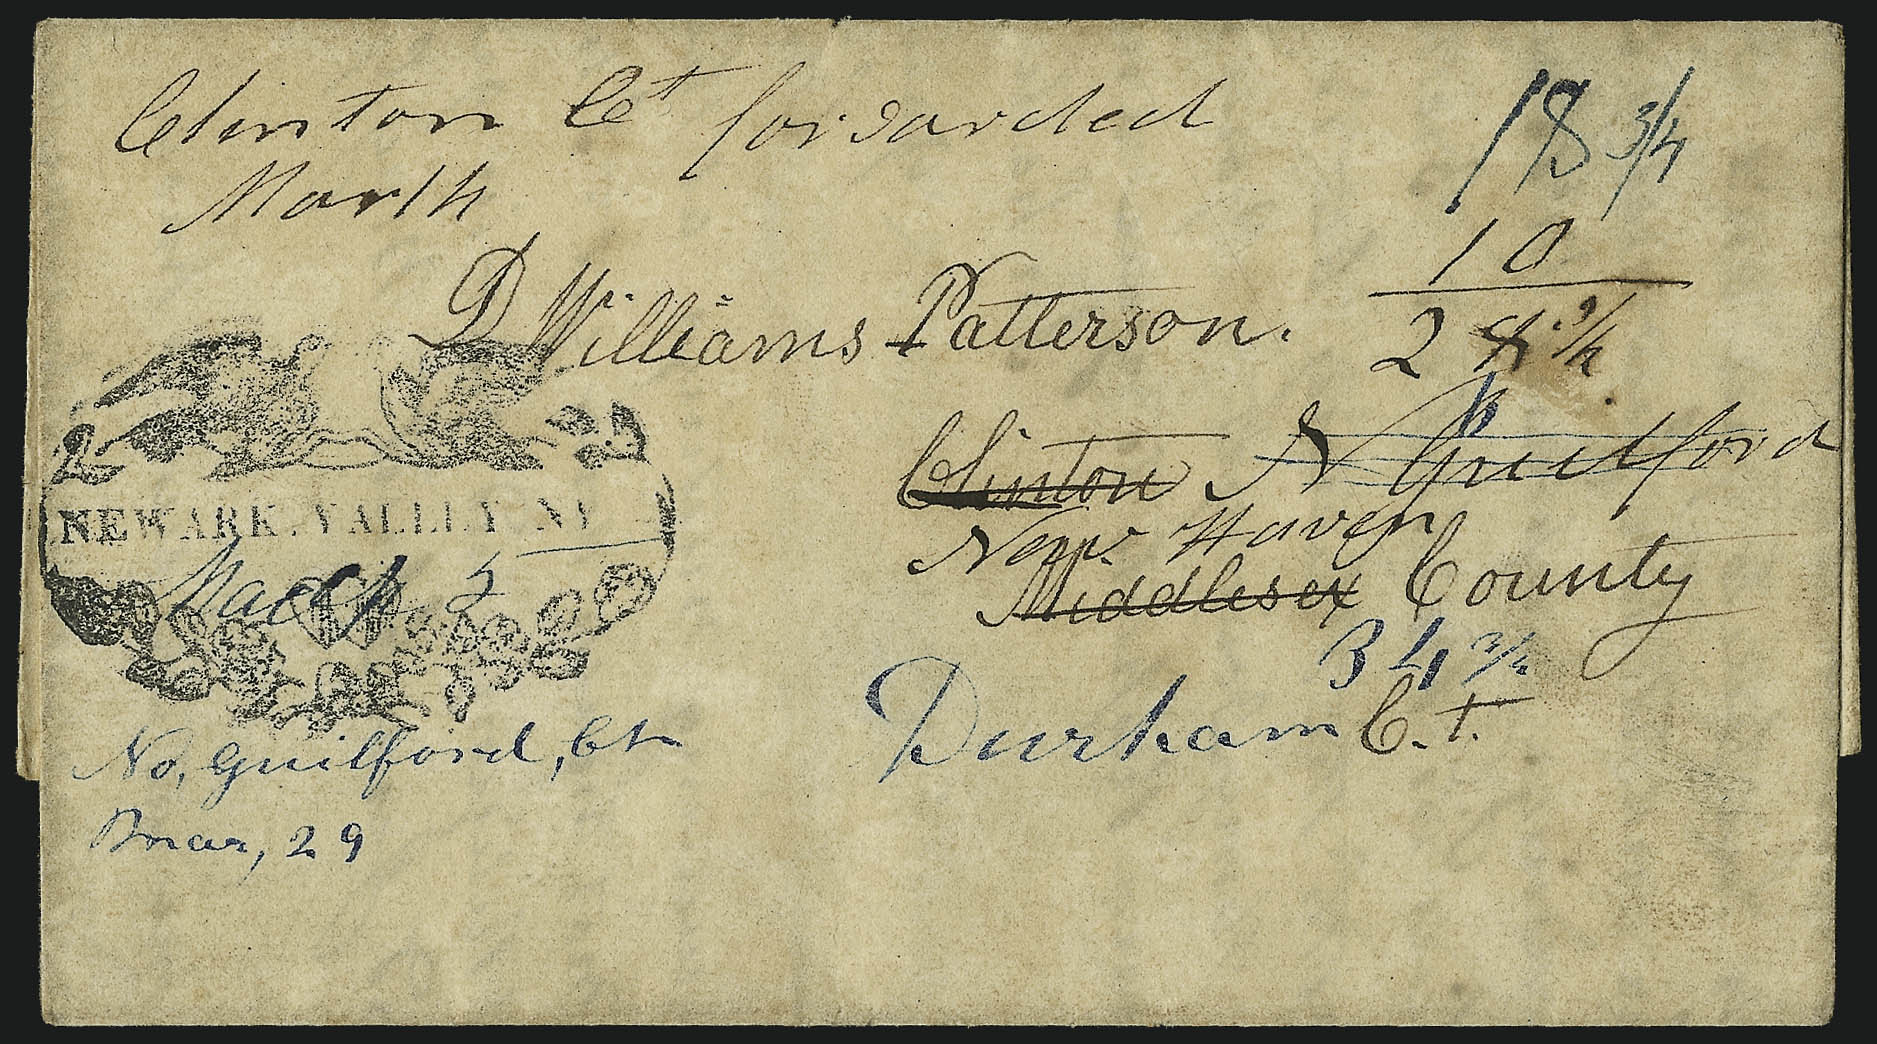 Clinton Ct forwarded
March
18 3/4
10
28 3/4
D Williams Patterson.
Clinton N Guilford
New Haven
Middlesex County
34 3/4
Durham C.t.
NEWARK. VALLEY NY
March 5
No, Guilford, Ct
Mar, 29